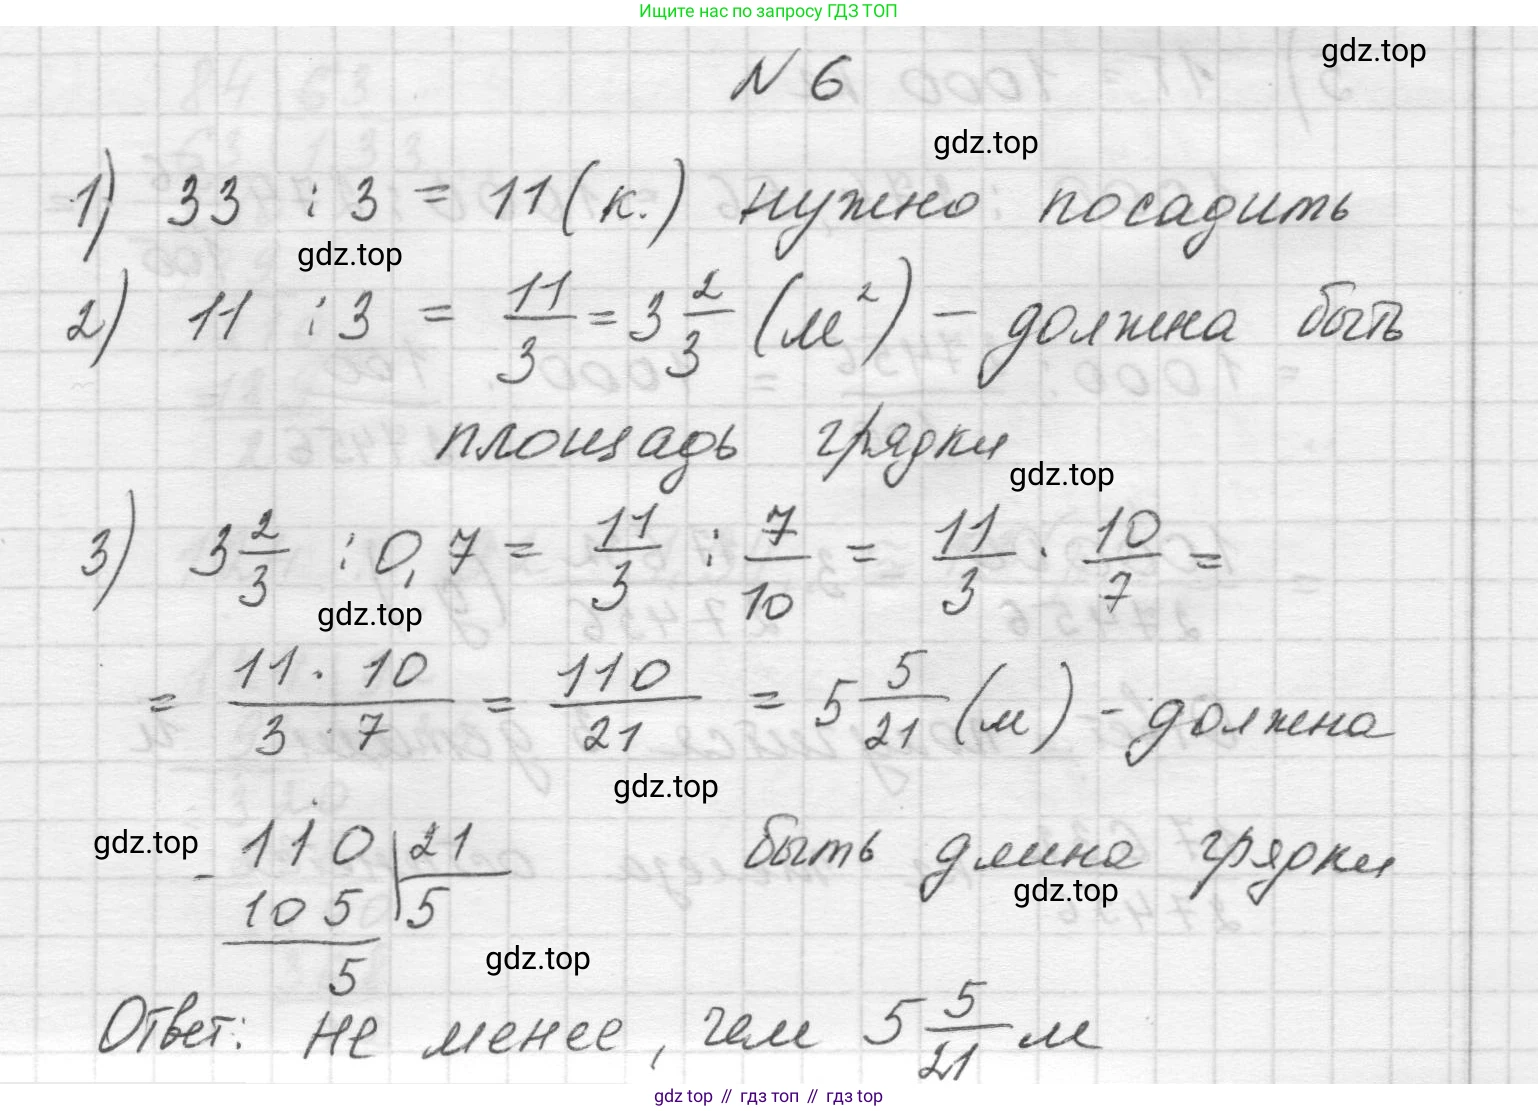 Ищите нас по запросу ГДЗ ТОП
gdz.top
N 6
gdz.top
1) 33 : 3 = 11 (к.) нужно посадить
gdz.top
2) 11 : 3 = 11/3 = 3 2/3 (м²) – должна быть
площадь грядки
gdz.top
3) 3 2/3 : 0,7 = 11/3 : 7/10 = 11/3 · 10/7 =
gdz.top
= 11 · 10 / 3 · 7 = 110/21 = 5 5/21 (м) - должна
gdz.top
gdz.top
- 110 | 21 быть длина грядки
105 | 5
gdz.top
gdz.top
5
Ответ: не менее, чем 5 5/21 м
gdz.top // гдз топ // гдз top